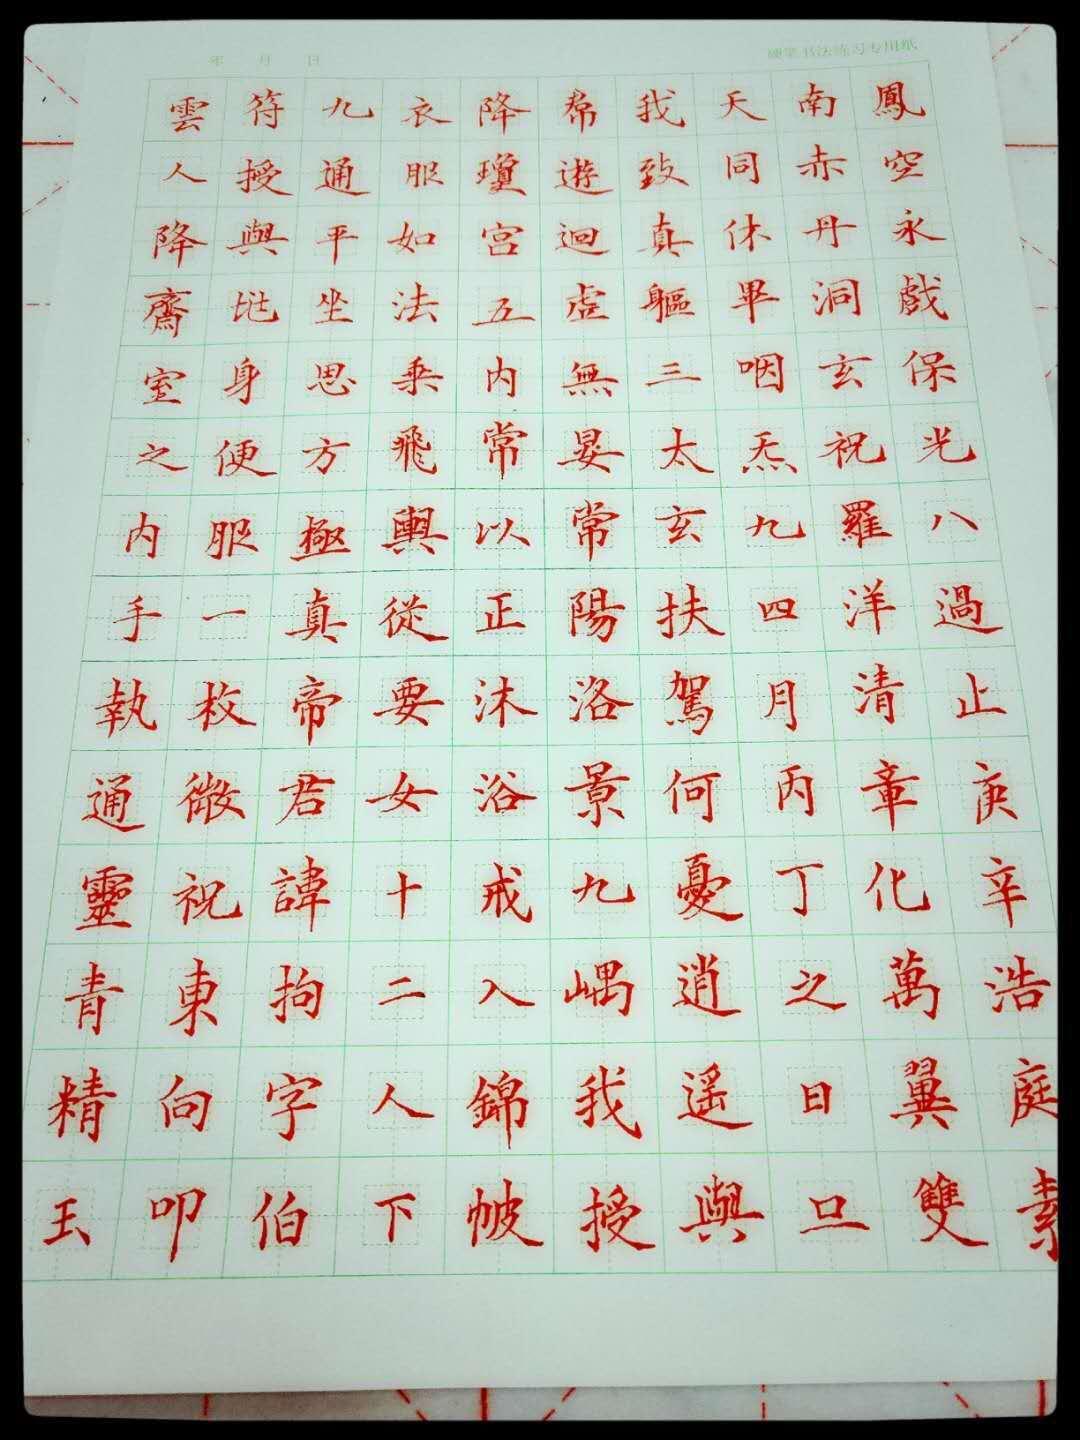 年 月 日 硬笔书法练习专用纸
鳳空永戲保光八過止庚辛浩庭素
南赤丹洞玄祝羅洋清章化萬翼雙
天同休畢咽炁九四月丙丁之日口
我致真軀三太玄扶駕何憂逍遥與
帬遊迴虛無晏常陽洛景九嵎我授
降瓊宮五內常以正沐浴戒入錦帔
衣服如法乘飛輿從要女十二人下
九通平坐思方極真帝君諱拘字伯
符授與身便服一枚微祝東向叩
雲人降齋室之內手執通靈青精玉